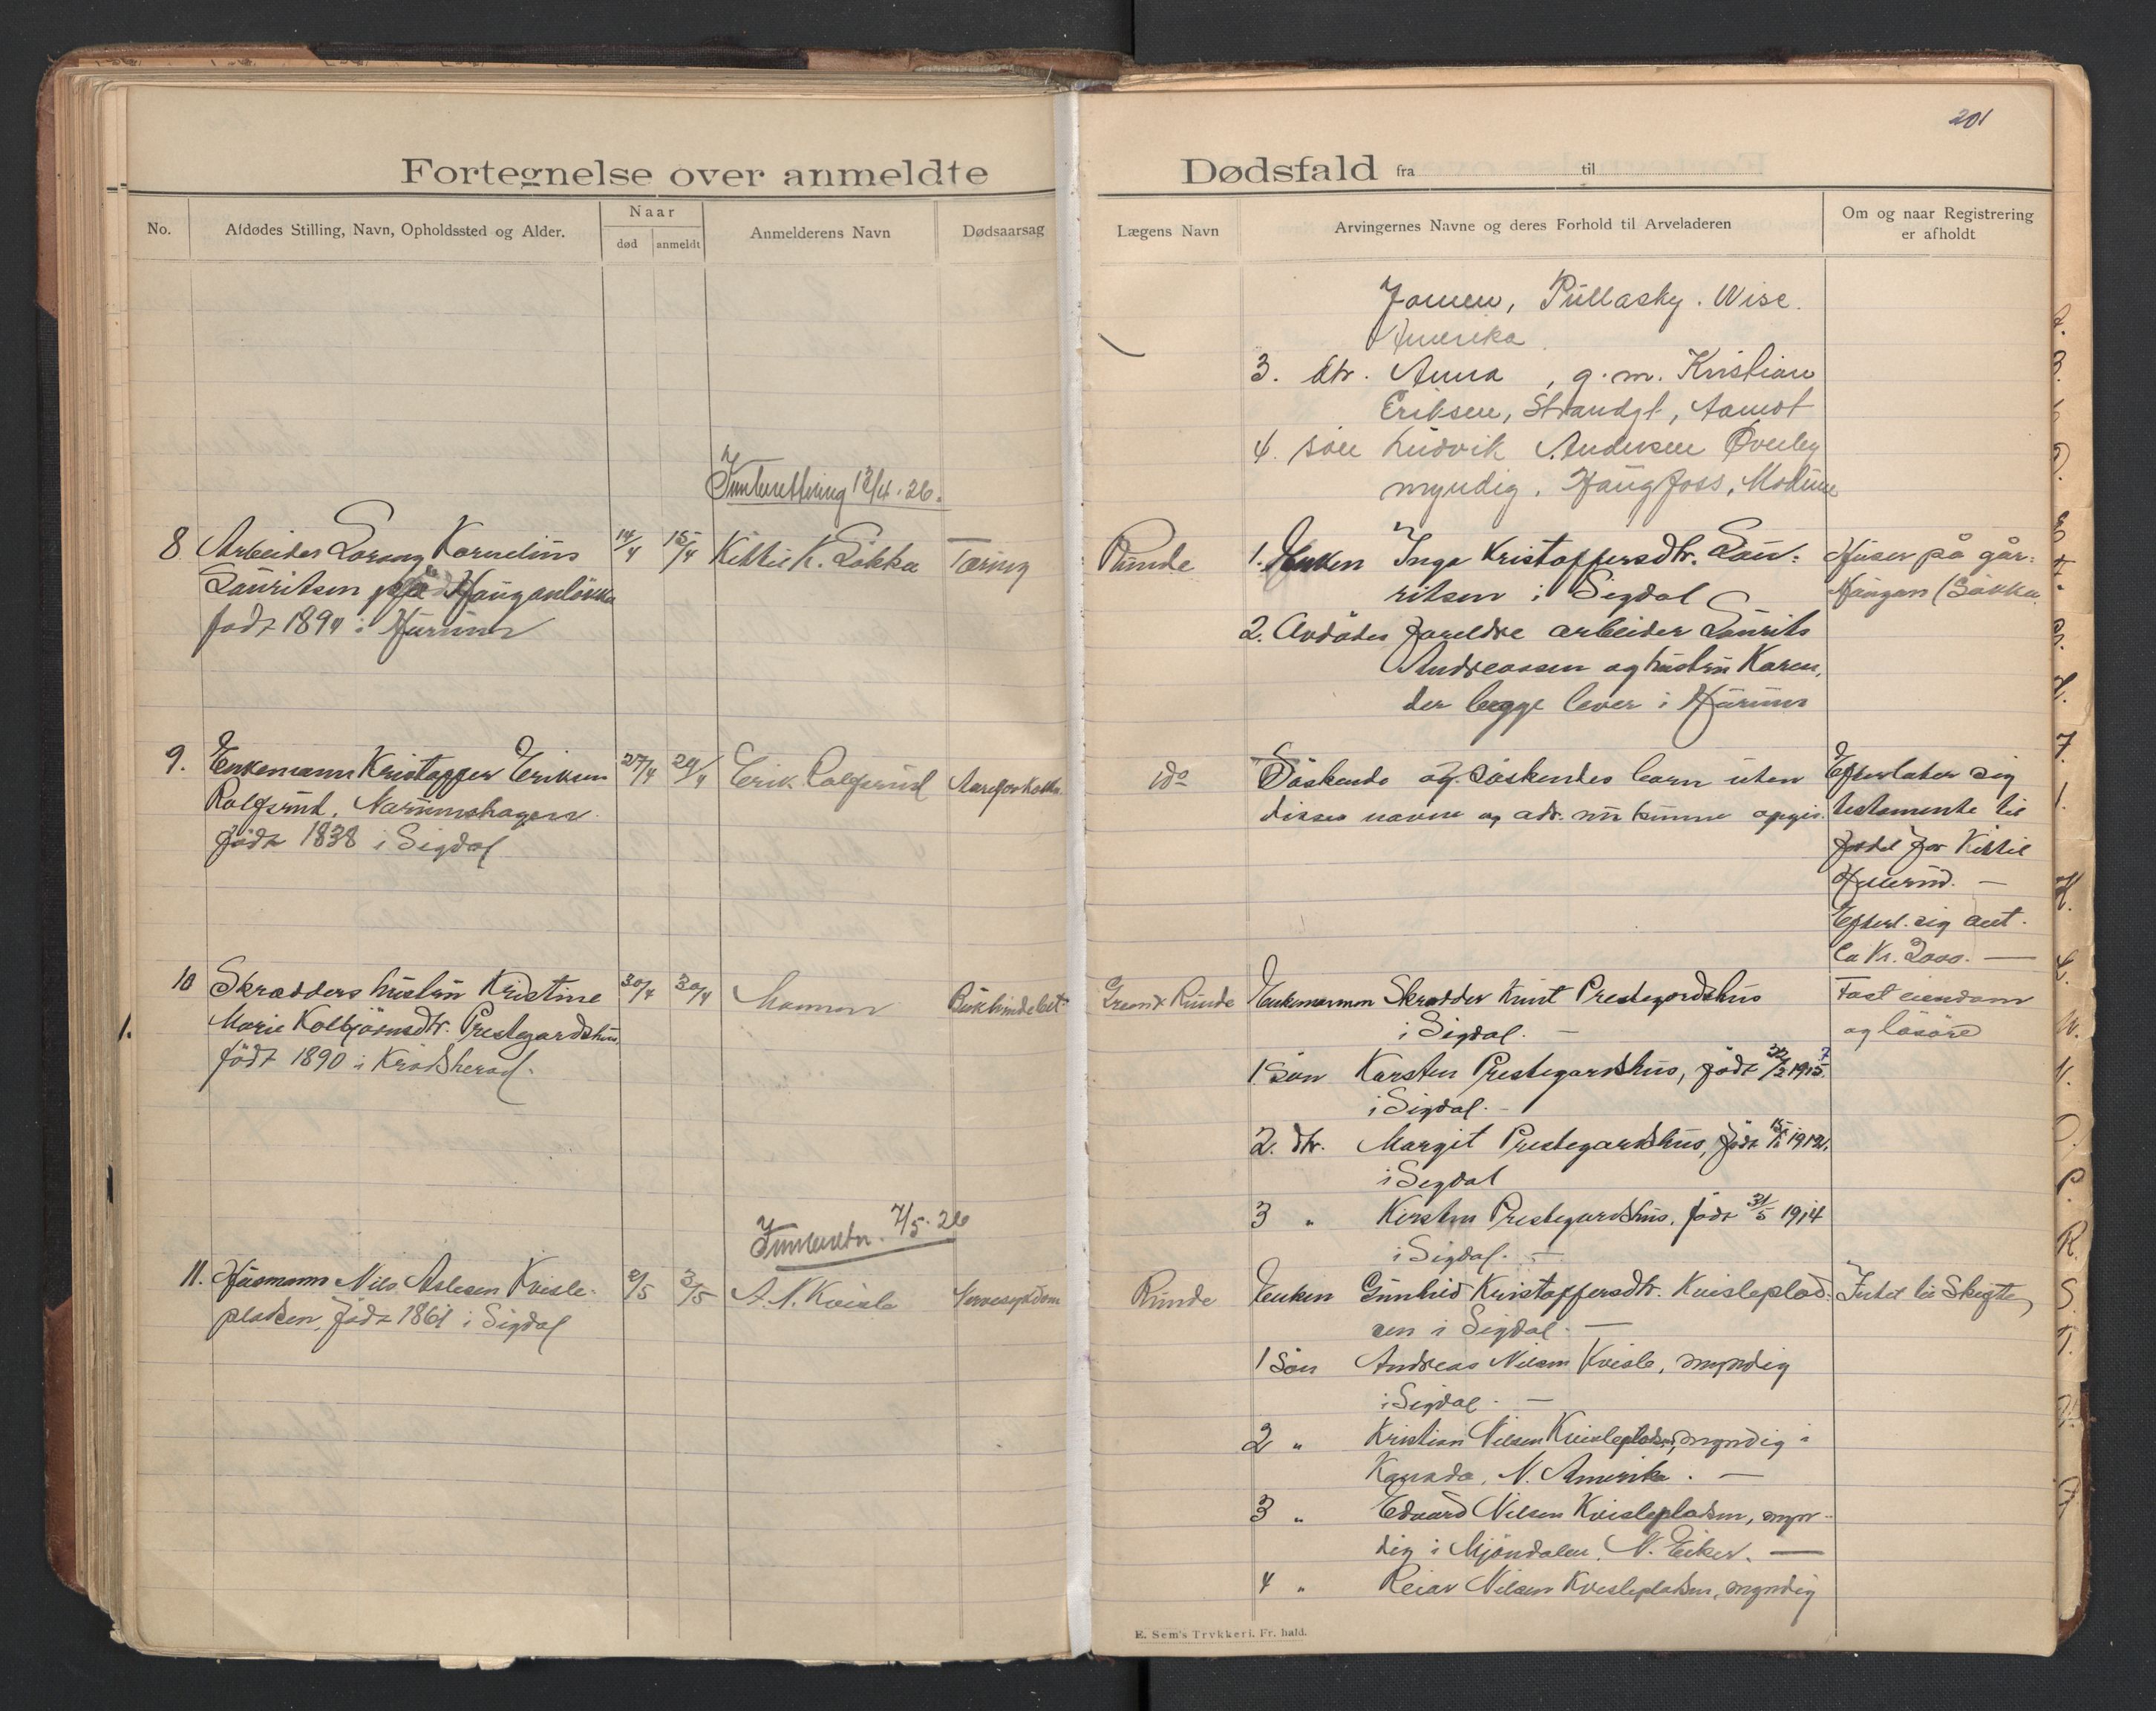 201
Fortegnelse over anmeldte Dødsfald fra til
No.
Afdødes Stilling, Navn, Opholdssted og Alder.
Naar
død anmeldt
Anmelderens Navn
Dødsaarsag
Lægens Navn
Arvingernes Navne og deres Forhold til Arveladeren
Om og naar Registrering
er afholdt
Pullasky. Wise.
Amerika
3. dtr. Anna, g. m. Kristian
Eriksen, Strandgt, Aamot
4. søn Ludvik Andersen Øverby
myndig. Haugfoss, Modum
Innberettning 13/4. 26.
8 Arbeider Kornelius
Lauritsen Hauganløkka
født 1894 i Hurum
14/4 15/4 Kittil K. Løkka Tæring
Runde
1. Enken Inga Kristoffersdtr. Lau-
ritsen i Sigdal
2. Avdødes foreldre arbeider Laurits
Andreassen og hustru Karen,
der begge lever i Hurum
Huser på går-
Haugan (Løkka
9. Enkemann Kristoffer Eriksen
Rolfsrud, Narumshagen
født 1838 i Sigdal
27/4 29/4 Erik Rolfsrud Aareforkalkn.
ido
Søskende og søskendes barn uten
disses navne og adr. nu kunne opgis.
Efterlater sig
testamente til
fordel for Kittil
Efterl. sig ant.
ca Kr. 2000. —
10 Skrædders hustru Kristine
Marie Kolbjørnsdtr. Prestegardshus
født 1890 i Krødsherad.
30/4 30/4 Mannen Bukhindebet.
Runde
Enkemannen Skrædder Knut Prestegardshus
i Sigdal. —
1 Søn Karsten Prestegardshus, født
i Sigdal. —
2. dtr. Margit Prestegardshus, født 1912.
i Sigdal
3 " Kirsten Prestegardshus, født 31/5 1914
i Sigdal. —
Fast eiendom
og løsøre
1.
Innberetn. 7/5. 26
11. Husmann Nils Aslesen Kvisle-
pladsen, født 1861 i Sigdal
2/5 3/5 A. N. Kvisle Nervesygdom
Runde
Enken Gunhild Kristoffersdtr. Kvisleplad-
sen i Sigdal. —
1 Søn Andreas Nilsen Kvisle, myndig
i Sigdal. —
2 " Kristian Nilsen Kvislepladsen, myndig i
Kanada, N. Amerika. —
3 " Edvard Nilsen Kvislepladsen, myn-
dig i Mjøndalen, N. Eiker. —
4 " Reiar Nilsen Kvislepladsen, myndig
Intet til Skifte
E. Sem's Trykkeri. Fr. hald.